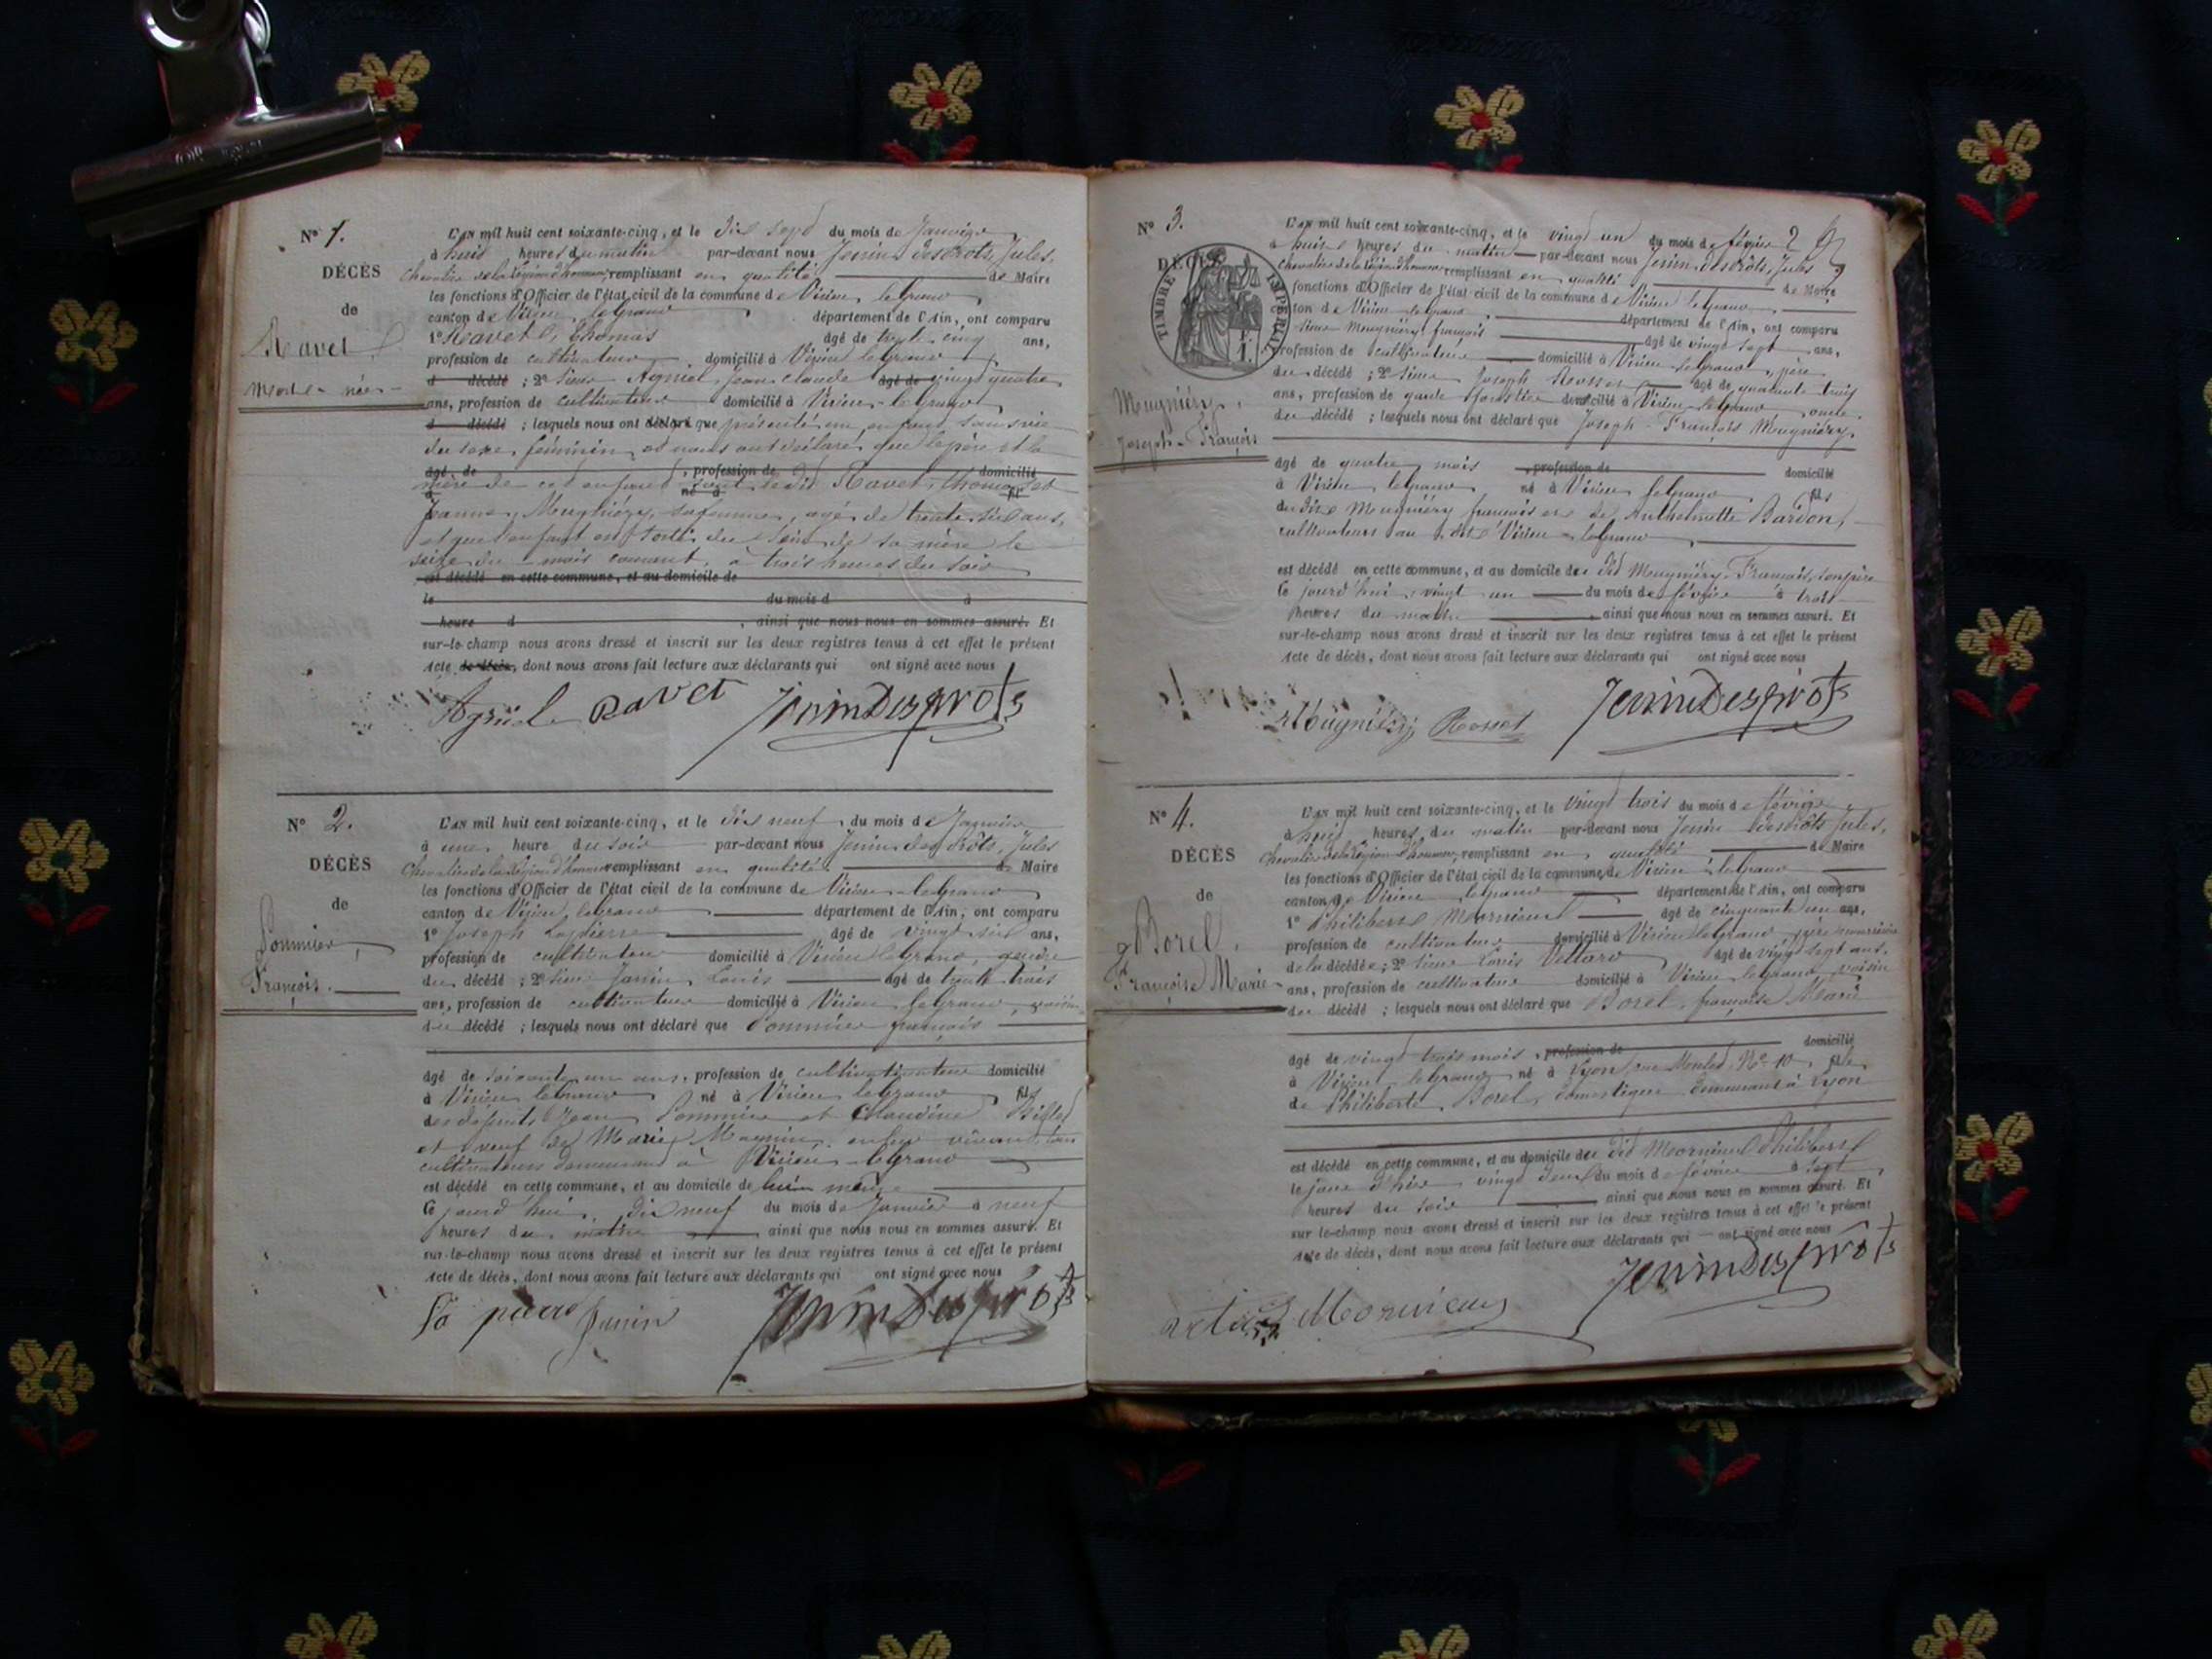 N° 1.
DÉCÈS
de
Ravet
Mort-née
L'AN mil huit cent soixante-cinq, et le dix sept du mois de Janvier
à huit heures du matin par-devant nous Jenin desprôts, Jules,
Chevalier de la Légion d'honneur, remplissant en qualité de Maire
les fonctions d'Officier de l'état civil de la commune de Virieu le grand
canton de Virieu le grand département de l'Ain, ont comparu
1° Ravet, Thomas âgé de trente cinq ans,
profession de cultivateur domicilié à Virieu le grand
d décédé ; 2° Sieur Agniel, Jean Claude âgé de vingt quatre
ans, profession de cultivateur domicilié à Virieu-le grand
d décédé ; lesquels nous ont déclaré que présenté un enfant sans vie
du sexe féminin et nous ont déclaré que le père et la
âgé de profession de domicilié
mère de cet enfant sont ledit Ravet, Thomas et
à né à fil
Jeanne Meugniéry, sa femme, agée de trente six ans,
et que l'enfant est sorti du sein de sa mère le
seize du mois courant, à trois heures du soir
est décédé en cette commune, et au domicile de
le du mois d à
heure d , ainsi que nous nous en sommes assuré. Et
sur-le-champ nous avons dressé et inscrit sur les deux registres tenus à cet effet le présent
Acte de décès, dont nous avons fait lecture aux déclarants qui ont signé avec nous
Agniel Ravet JeninDesprots
N° 2.
DÉCÈS
de
Pommier,
François.
L'AN mil huit cent soixante-cinq, et le dix neuf du mois de Janvier
à une heure du soir par-devant nous Jenin des prôts, Jules
Chevalier de la Légion d'honneur remplissant en qualité de Maire
les fonctions d'Officier de l'état civil de la commune de Virieu-le grand
canton de Virieu le grand département de l'Ain, ont comparu
1° Joseph Lapierre âgé de vingt six ans,
profession de cultivateur domicilié à Virieu le grand, gendre
du décédé ; 2° Sieur Janin Louis âgé de trente trois
ans, profession de cultivateur domicilié à Virieu le grand, voisin
du décédé ; lesquels nous ont déclaré que Pommier françois
âgé de soixante un ans, profession de domicilié
à Virieu le grand né à Virieu le grand fils
des défunts Jean Pommier et Claudine
et veuf de Marie Magnin, en leur vivant tous
cultivateurs demeurant à Virieu-le grand
est décédé en cette commune, et au domicile de lui même
le jourd'hui dix neuf du mois de Janvier à neuf
heures du matin ainsi que nous nous en sommes assuré. Et
sur-le-champ nous avons dressé et inscrit sur les deux registres tenus à cet effet le présent
Acte de décès, dont nous avons fait lecture aux déclarants qui ont signé avec nous
Janin JeninDesprots
N° 3.
DÉCÈS
TIMBRE IMPÉRIAL
Meugniéry,
Joseph-François
L'AN mil huit cent soixante-cinq, et le vingt un du mois de février
à huit heures du matin par-devant nous Jenin desprôts, Jules
Chevalier de la Légion d'honneur remplissant en qualité de Maire
fonctions d'Officier de l'état civil de la commune de Virieu le grand
canton de Virieu le grand département de l'Ain, ont comparu
Sieur Meugniéry, françois âgé de vingt sept ans,
profession de cultivateur domicilié à Virieu le grand, père
du décédé ; 2° Sieur Joseph Rosset âgé de quarante trois
ans, profession de garde forestier domicilié à Virieu-le grand, oncle
du décédé ; lesquels nous ont déclaré que Joseph-François Meugniéry,
âgé de quatre mois profession de domicilié
à Virieu le grand né à Virieu le grand fils
du dit Meugniéry françois et de Anthelmette Bardon,
cultivateurs au dit Virieu-le grand
est décédé en cette commune, et au domicile du dit Meugniéry François, son père
le jourd'hui vingt un du mois de février à trois
heures du matin , ainsi que nous nous en sommes assuré. Et
sur-le-champ nous avons dressé et inscrit sur les deux registres tenus à cet effet le présent
Acte de décès, dont nous avons fait lecture aux déclarants qui ont signé avec nous
Meugniéry Rosset JeninDesprots
N° 4.
DÉCÈS
de
Borel,
Françoise Marie
L'AN mil huit cent soixante-cinq, et le vingt trois du mois de février
à huit heures du matin par-devant nous Jenin desprôts Jules,
Chevalier de la Légion d'honneur, remplissant en qualité de Maire
les fonctions d'Officier de l'état civil de la commune de Virieu le grand
canton de Virieu le grand département de l'Ain, ont comparu
1° Philibert Mornieux âgé de cinquante un ans,
profession de cultivateur domicilié à Virieu le grand père nourricier
de la décédée ; 2° Sieur Louis Vettard âgé de vingt sept ans.
ans, profession de cultivateur domicilié à Virieu le grand, voisin
du décédé ; lesquels nous ont déclaré que Borel, françoise Marie
âgé de vingt trois mois, profession de domicilié
à Virieu le grand né à Lyon, rue N° 10 fille
de Philiberte Borel, domestique demeurant à Lyon
est décédé en cette commune, et au domicile du dit Mornieux Philibert
le jour d'hier vingt deux du mois de février à sept
heures du soir ainsi que nous nous en sommes assuré. Et
sur-le-champ nous avons dressé et inscrit sur les deux registres tenus à cet effet le présent
Acte de décès, dont nous avons fait lecture aux déclarants qui ont signé avec nous
Mornieux JeninDesprots